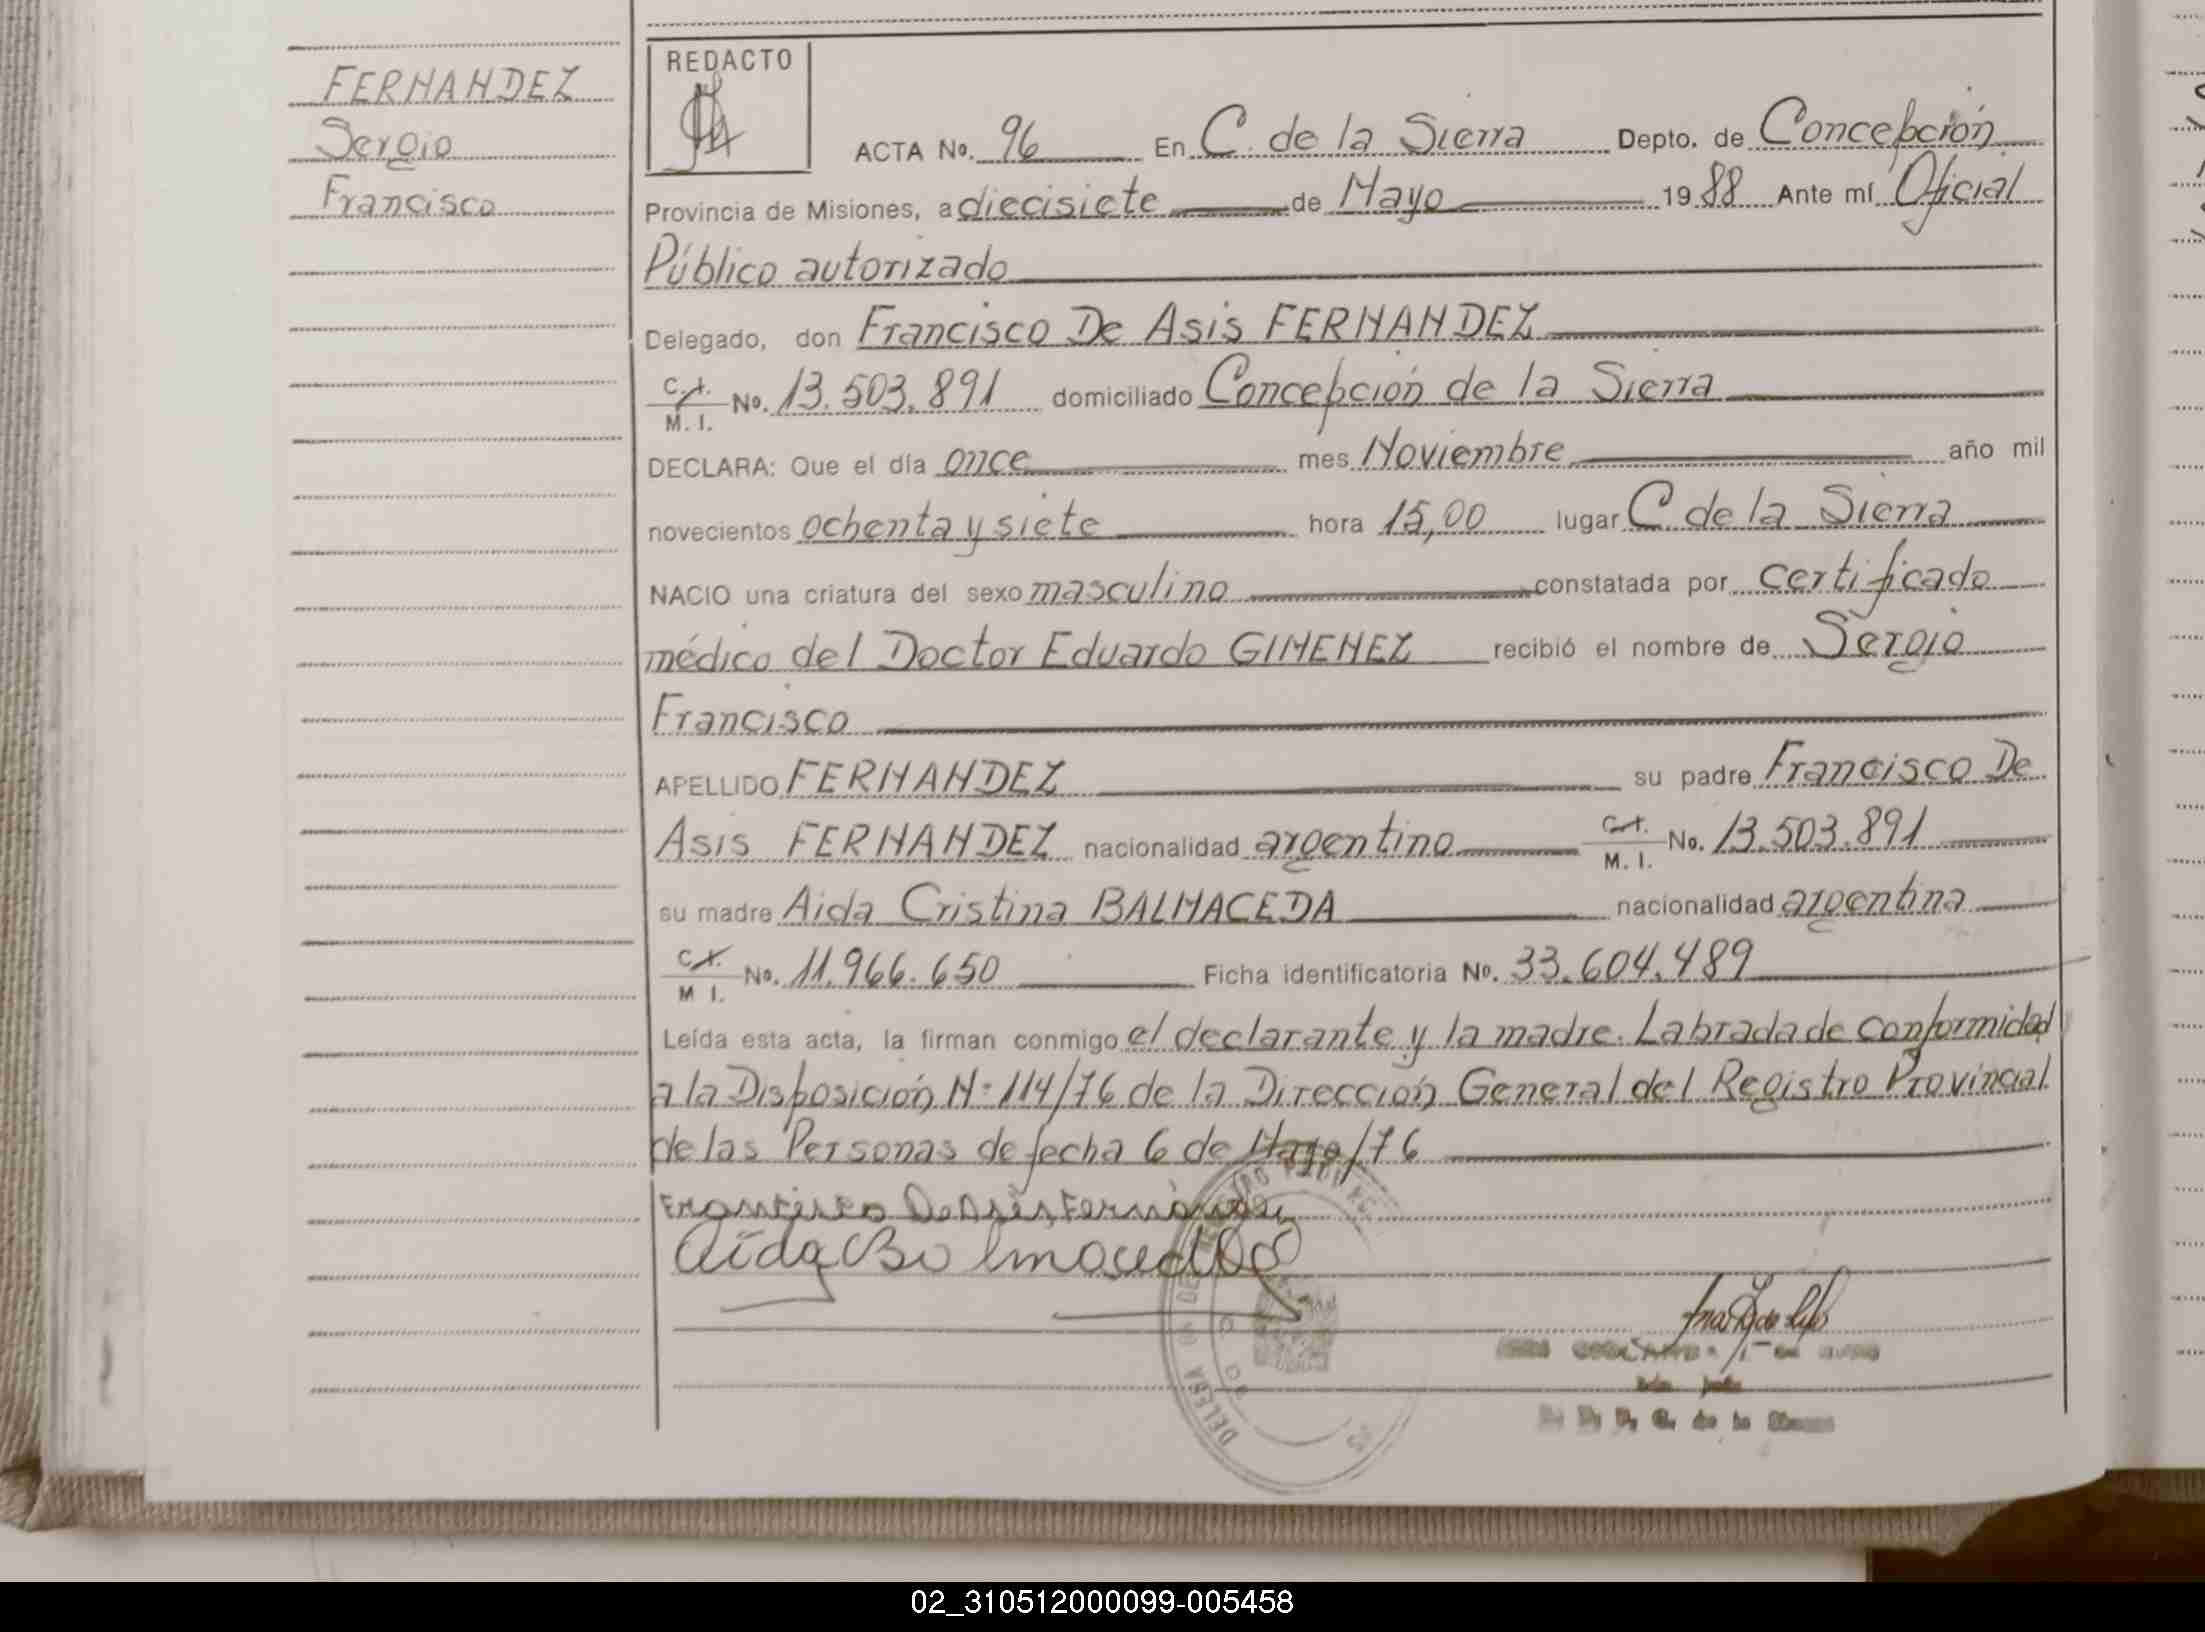 FERNANDEZ
Sergio
Francisco
REDACTO
ACTA No. 96 En C. de la Sierra Depto. de Concepción
Provincia de Misiones, a diecisiete de Mayo 1988 Ante mí Oficial
Público autorizado
Delegado, don Francisco De Asis FERNANDEZ
C.I.
M. I. No. 13.503.891 domiciliado Concepción de la Sierra
DECLARA: Que el día once mes Noviembre año mil
novecientos ochenta y siete hora 15,00 lugar C de la Sierra
NACIO una criatura del sexo masculino constatada por certificado
médico del Doctor Eduardo GIMENEZ recibió el nombre de Sergio
Francisco
APELLIDO FERNANDEZ su padre Francisco De
Asis FERNANDEZ nacionalidad argentino C.I. M. I. No. 13.503.891
su madre Aida Cristina BALMACEDA nacionalidad argentina
C.I.
M I. No. 11.966.650 Ficha identificatoria No. 33.604.489
Leída esta acta, la firman conmigo el declarante y la madre. Labrada de conformidad
a la Disposición N: 114/76 de la Dirección General del Registro Provincial
de las Personas de fecha 6 de Mayo/76
Francisco De Asis Fernández
Aída Balmaceda
02_310512000099-005458